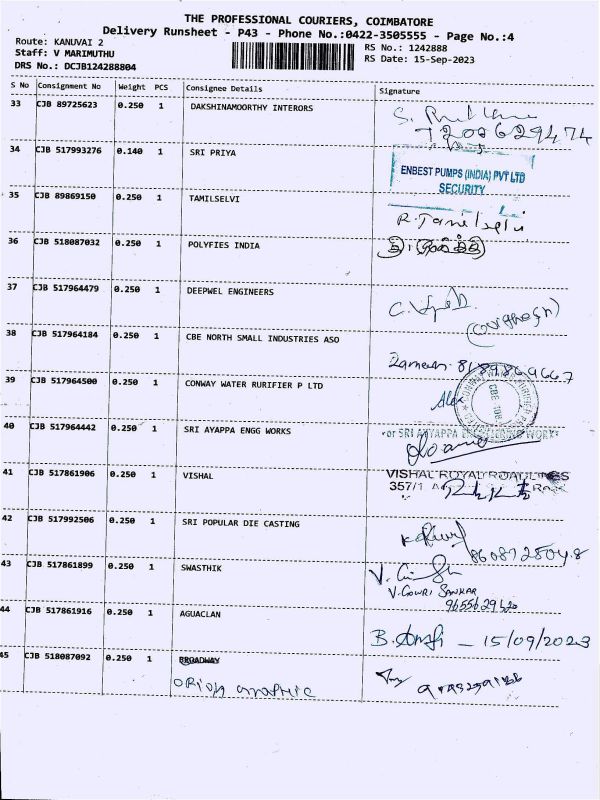 THE PROFESSIONAL COURIERS, COIMBATORE
Delivery Runsheet - P43 - Phone No.:0422-3505555 - Page No.:4
Route: KANUVAI 2
Staff: V MARIMUTHU
DRS No.: DCJB124288804
RS No.: 1242888
RS Date: 15-Sep-2023
S No Consignment No Weight PCS Consignee Details Signature
33 CJB 89725623 0.250 1 DAKSHINAMOORTHY INTERORS
34 CJB 517993276 0.140 1 SRI PRIYA
ENBEST PUMPS (INDIA) PVT LTD
SECURITY
35 CJB 89869150 0.250 1 TAMILSELVI
R. Tamilselvi
36 CJB 518087032 0.250 1 POLYFIES INDIA
37 CJB 517964479 0.250 1 DEEPWEL ENGINEERS
38 CJB 517964184 0.250 1 CBE NORTH SMALL INDUSTRIES ASO
39 CJB 517964500 0.250 1 CONWAY WATER RURIFIER P LTD
40 CJB 517964442 0.250 1 SRI AYAPPA ENGG WORKS
or SRI AYYAPPA ENGINEERING WORK
41 CJB 517861906 0.250 1 VISHAL
VISHAL ROYAL ROADLINES
357/1
42 CJB 517992506 0.250 1 SRI POPULAR DIE CASTING
43 CJB 517861899 0.250 1 SWASTHIK
V. GOWRI SANKAR
44 CJB 517861916 0.250 1 AGUACLAN
15/09/2023
45 CJB 518087092 0.250 1 BROADWAY